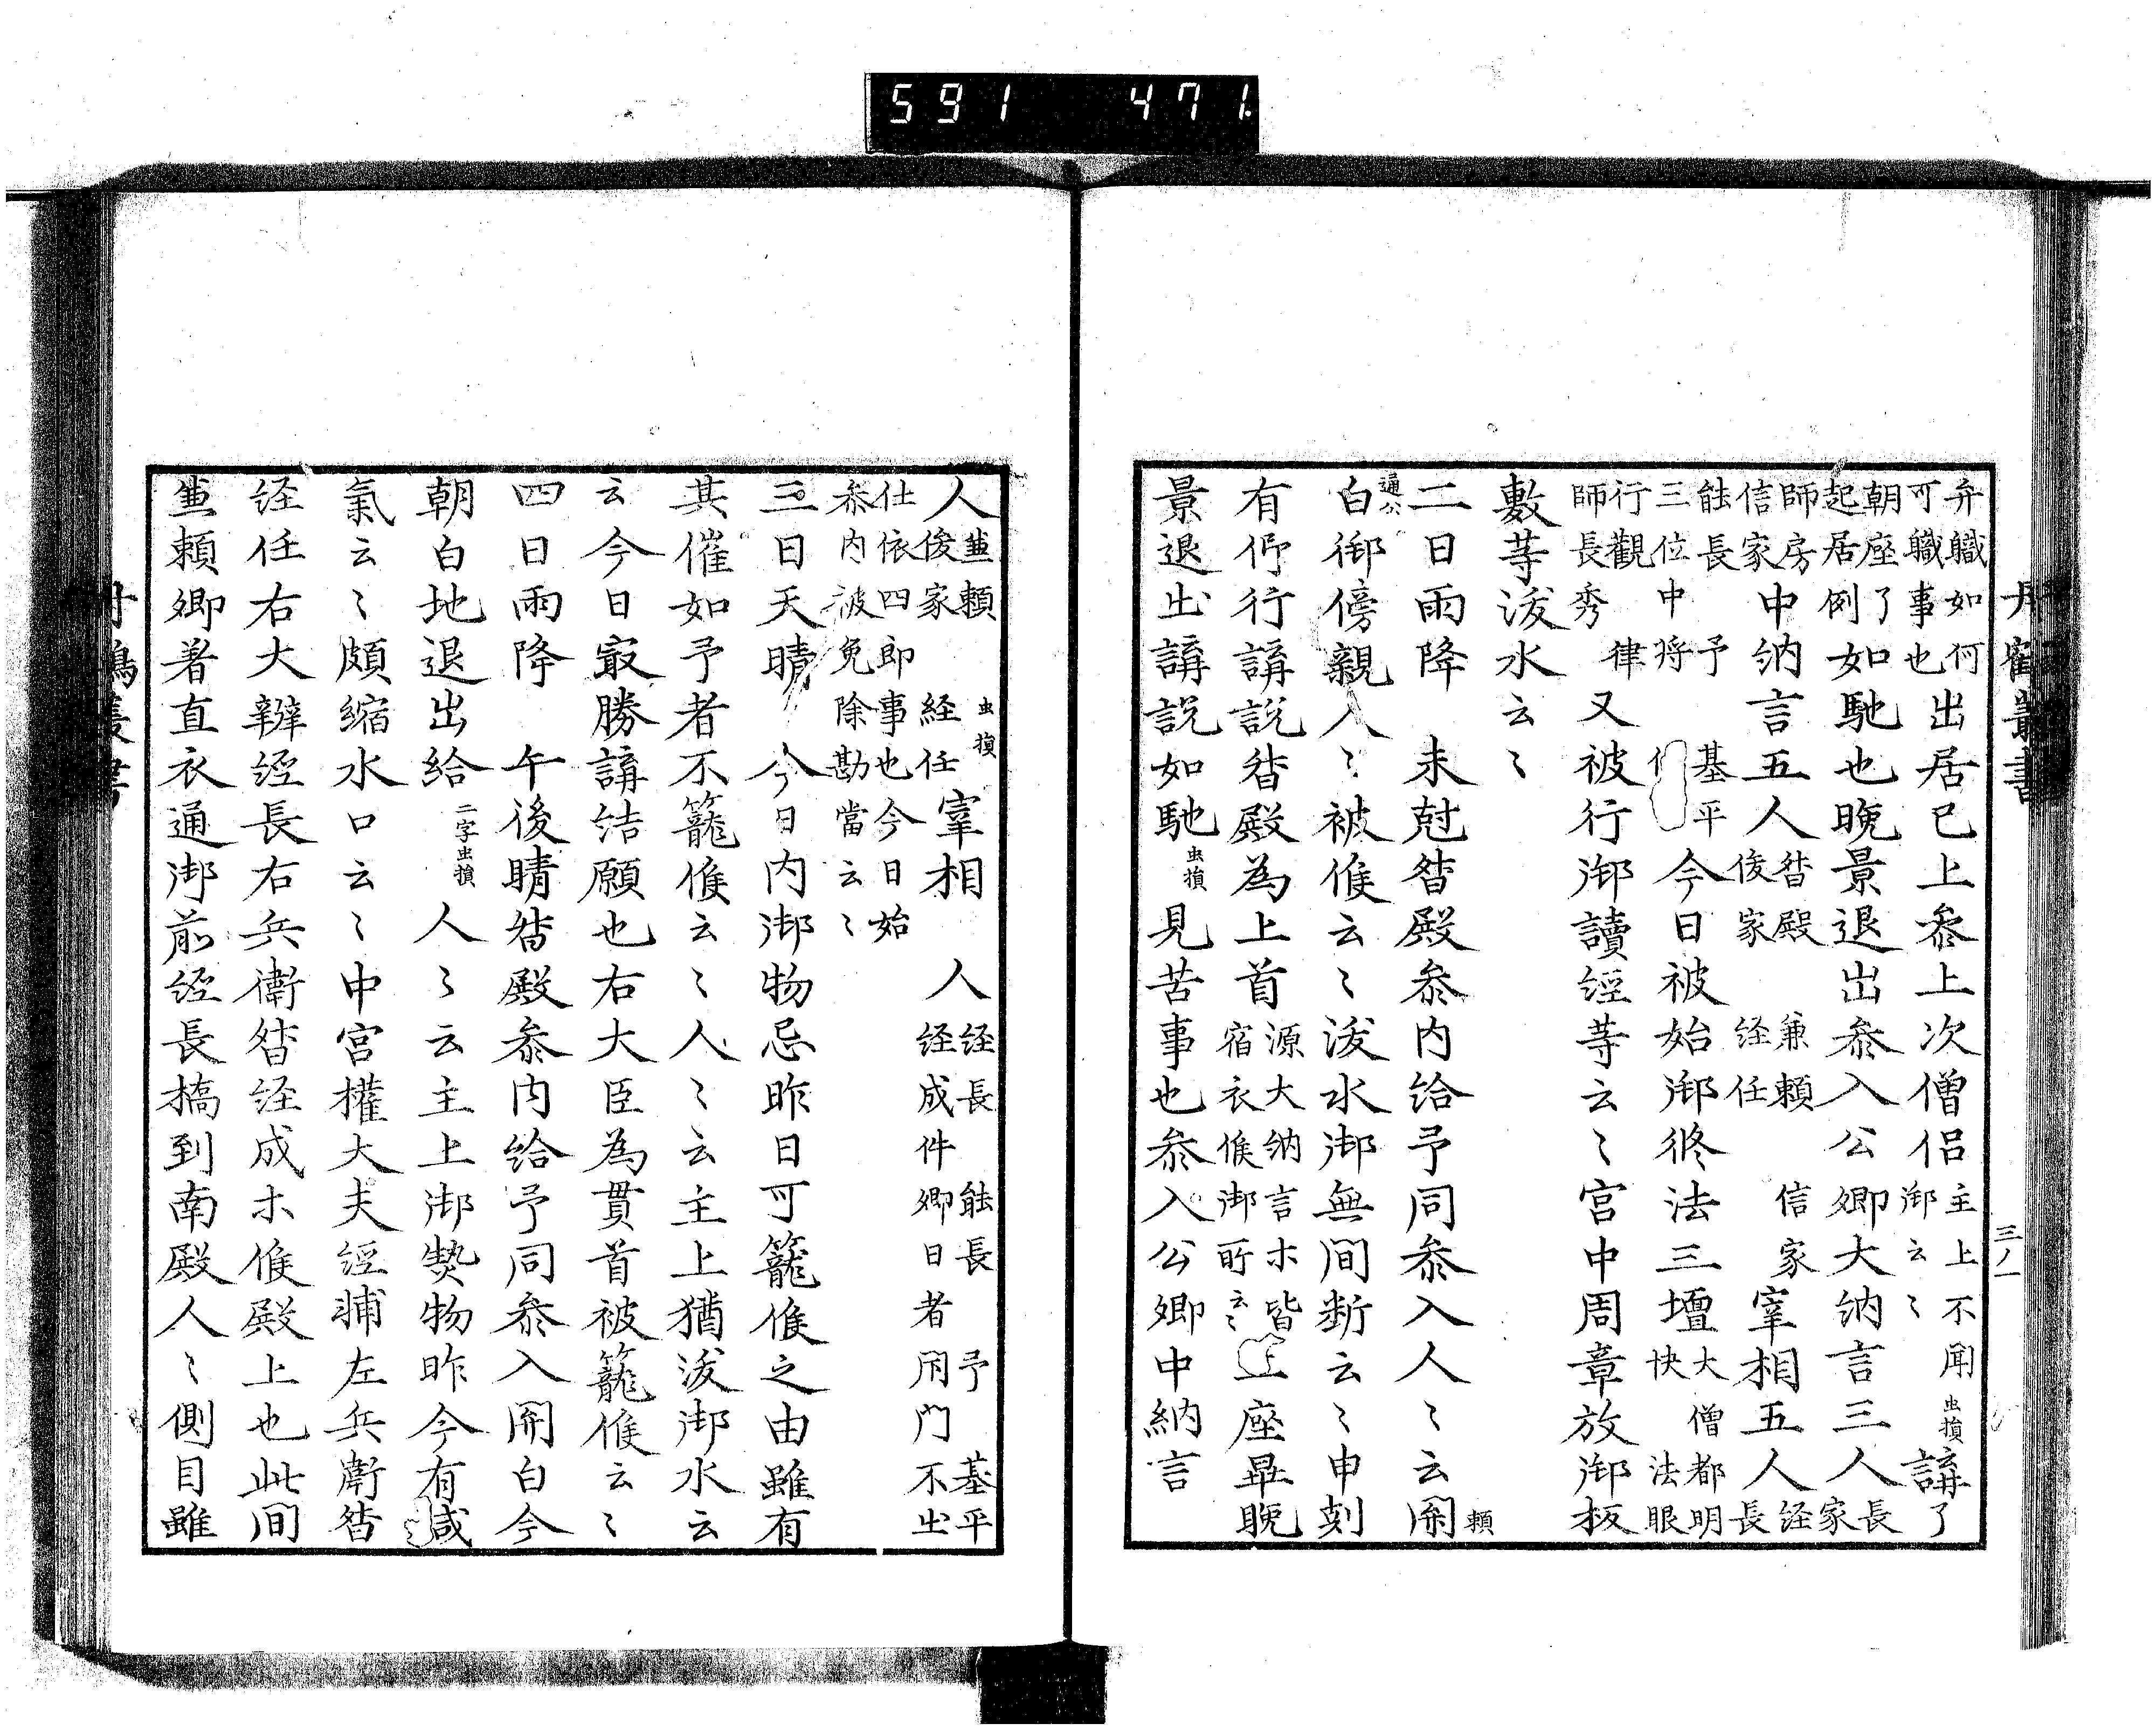 591 471
丹鶴叢書
弁職如何
可職事也
出居已上参上次僧侶
主上不聞虫損
御云〻
講了
朝座了
起居例
如馳也晩景退出参入公卿大納言三人
長
家
師房
信家
中納言五人
皆殿 兼頼 信家
俊家 経任
宰相五人
経
長
能長 予 基平
三位中将
今日被始御修法三壇
大僧都明
快 法眼
行観 律
師長秀
又被行御讀経等云〻宮中周章放御板
敷等沃水云〻
二日雨降 未尅皆殿参内給予同参入人〻云関
頼
通公
白御傍親人〻被候云〻沃水御無間断云〻申刻
有行行講説皆殿為上首
源大納言木皆
宿衣候御所云〻
上座畢晩
景退出講説如馳
虫損
見苦事也参入公卿中納言
三ノ一
人
兼頼 虫損
俊家 経任
宰相 人
経長 能長 予 基平
経成件卿日者閉門不出
仕依四郎事也今日始
参内被免除勘當云〻
三日天晴 今日内御物忌昨日可籠候之由雖有
其催如予者不籠候云〻人〻云主上猶沃御水云
云今日最勝講結願也右大臣為貫首被籠候云〻
四日雨降 午後晴皆殿参内給予同参入関白今
朝白地退出給
二字虫損
人〻云主上御㔟物昨今有減
氣云〻頗縮水口云〻中宮權大夫経輔左兵衛皆
経任右大辨経長右兵衛皆経成木候殿上也此間
兼頼卿着直衣通御前経長橋到南殿人〻側目雖
丹鶴叢書